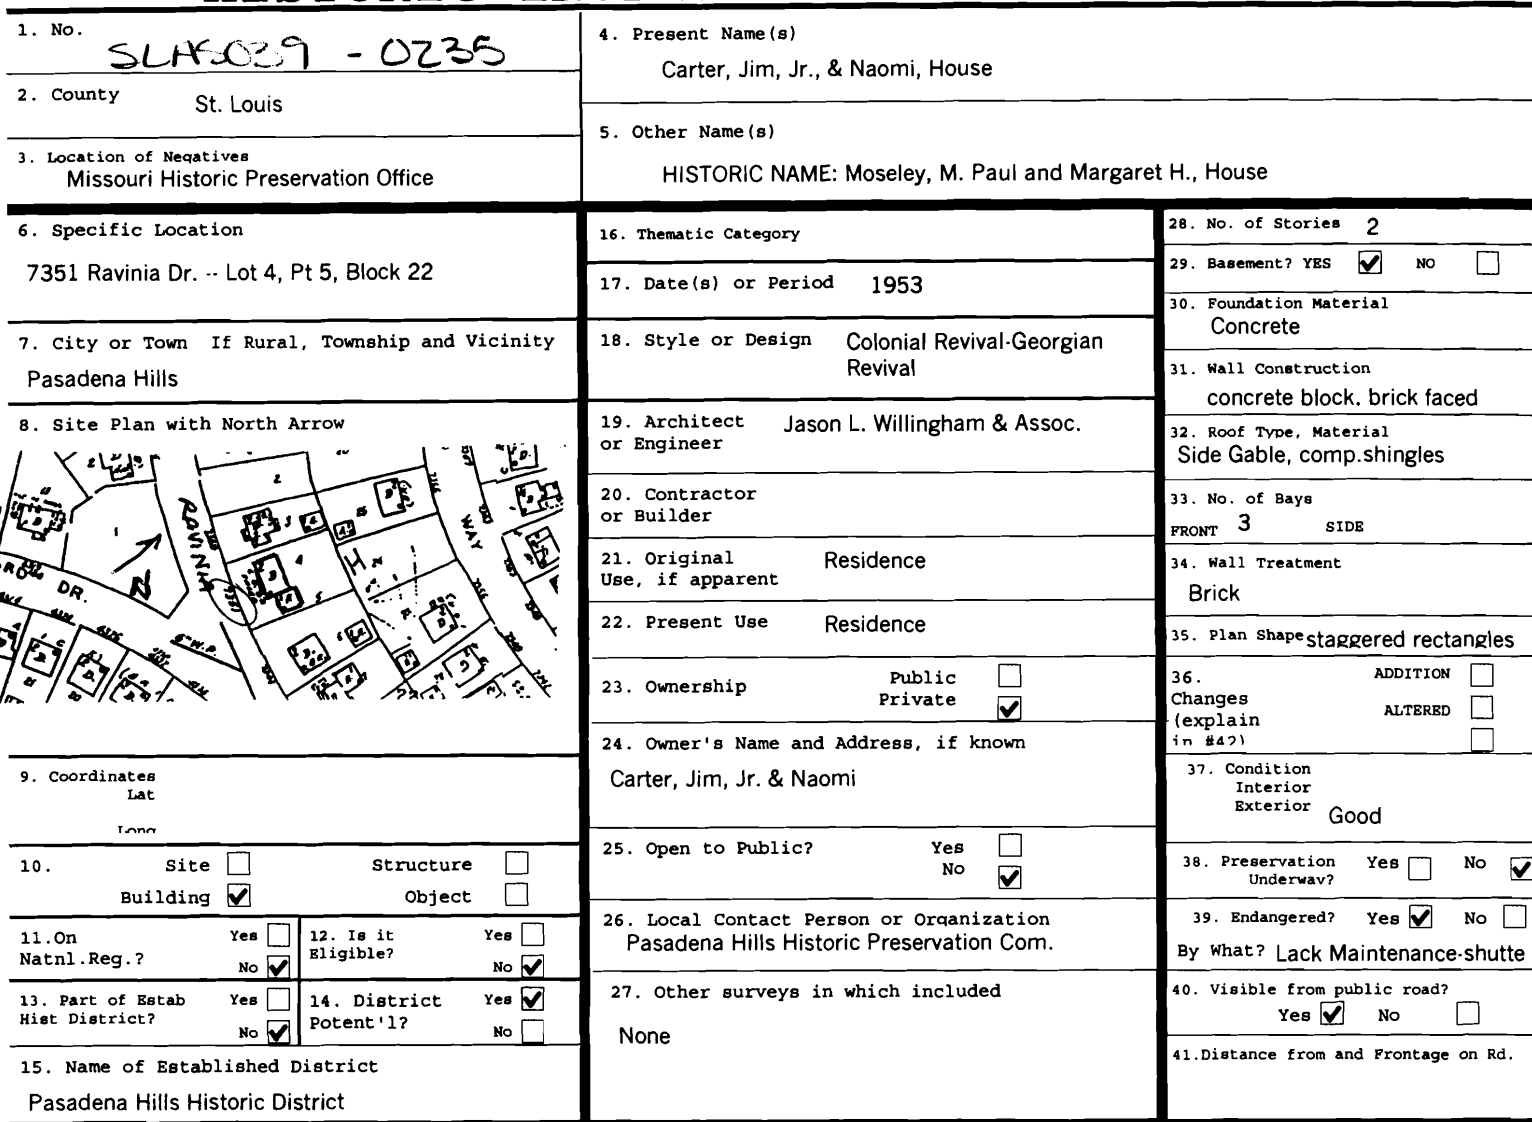 1. No.
SLAS029 - 0235
2. County
St. Louis
3. Location of Negatives
Missouri Historic Preservation Office
4. Present Name(s)
Carter, Jim, Jr., & Naomi, House
5. Other Name(s)
HISTORIC NAME: Moseley, M. Paul and Margaret H., House
6. Specific Location
7351 Ravinia Dr. -- Lot 4, Pt 5, Block 22
7. City or Town If Rural, Township and Vicinity
Pasadena Hills
8. Site Plan with North Arrow
RAVINIA
WAY
DR.
N
9. Coordinates
Lat
Long
10. Site Structure
Building Object
11.On Yes
Natnl.Reg.? No
12. Is it Yes
Eligible? No
13. Part of Estab Yes
Hist District? No
14. District Yes
Potent'l? No
15. Name of Established District
Pasadena Hills Historic District
16. Thematic Category
17. Date(s) or Period 1953
18. Style or Design Colonial Revival-Georgian
Revival
19. Architect Jason L. Willingham & Assoc.
or Engineer
20. Contractor
or Builder
21. Original Residence
Use, if apparent
22. Present Use Residence
23. Ownership Public
Private
24. Owner's Name and Address, if known
Carter, Jim, Jr. & Naomi
25. Open to Public? Yes
No
26. Local Contact Person or Organization
Pasadena Hills Historic Preservation Com.
27. Other surveys in which included
None
28. No. of Stories 2
29. Basement? YES NO
30. Foundation Material
Concrete
31. Wall Construction
concrete block. brick faced
32. Roof Type, Material
Side Gable, comp.shingles
33. No. of Bays
FRONT 3 SIDE
34. Wall Treatment
Brick
35. Plan Shape staggered rectangles
36. ADDITION
Changes
(explain ALTERED
in #42)
37. Condition
Interior
Exterior Good
38. Preservation Yes No
Underway?
39. Endangered? Yes No
By What? Lack Maintenance-shutte
40. Visible from public road?
Yes No
41.Distance from and Frontage on Rd.